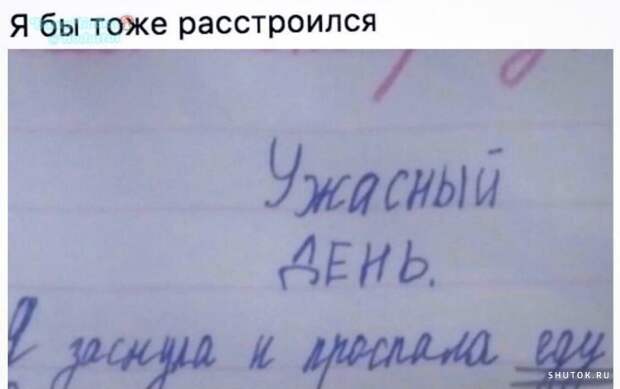 Я бы тоже расстроился
Ужасный
ДЕНЬ.
Я заснула и проспала еду
SHUTOK.RU